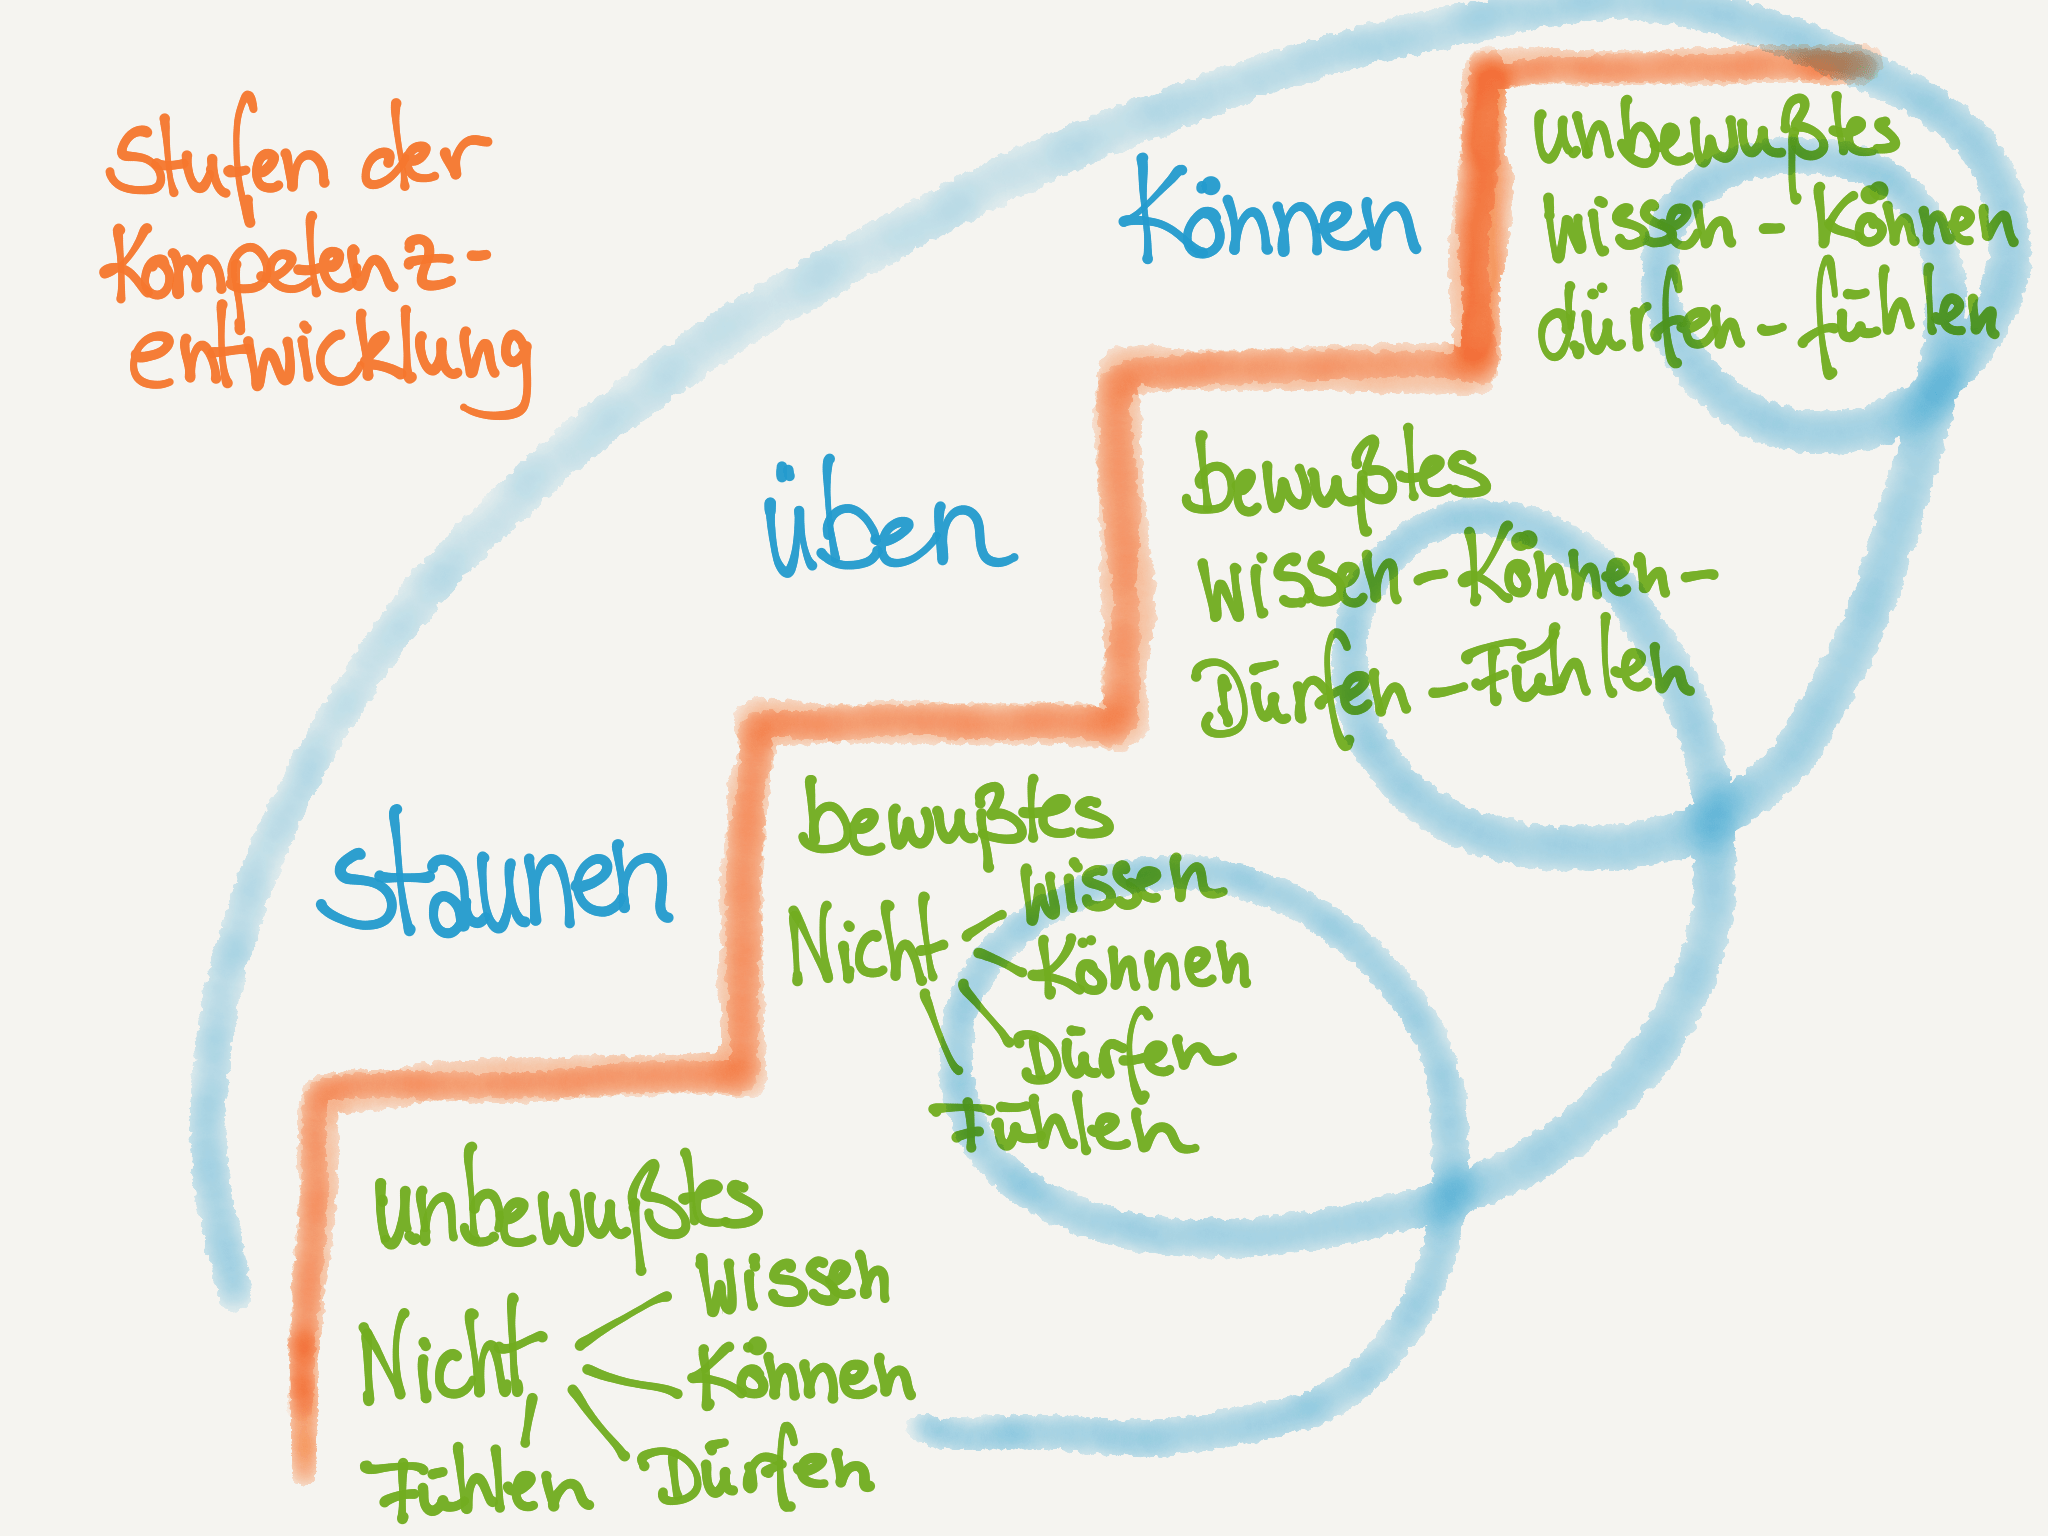 Stufen der
Kompetenz-
entwicklung
Können
unbewußtes
Wissen - Können
dürfen - fühlen
üben
bewußtes
Wissen - Können -
Dürfen - Fühlen
staunen
bewußtes
Nicht
Wissen
Können
Dürfen
Fühlen
unbewußtes
Nicht
Wissen
Können
Dürfen
Fühlen